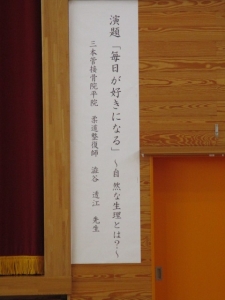 演題「毎日が好きになる」～自然な生理とは？～
三本菅接骨院平院　柔道整復師　澁谷　道江　先生